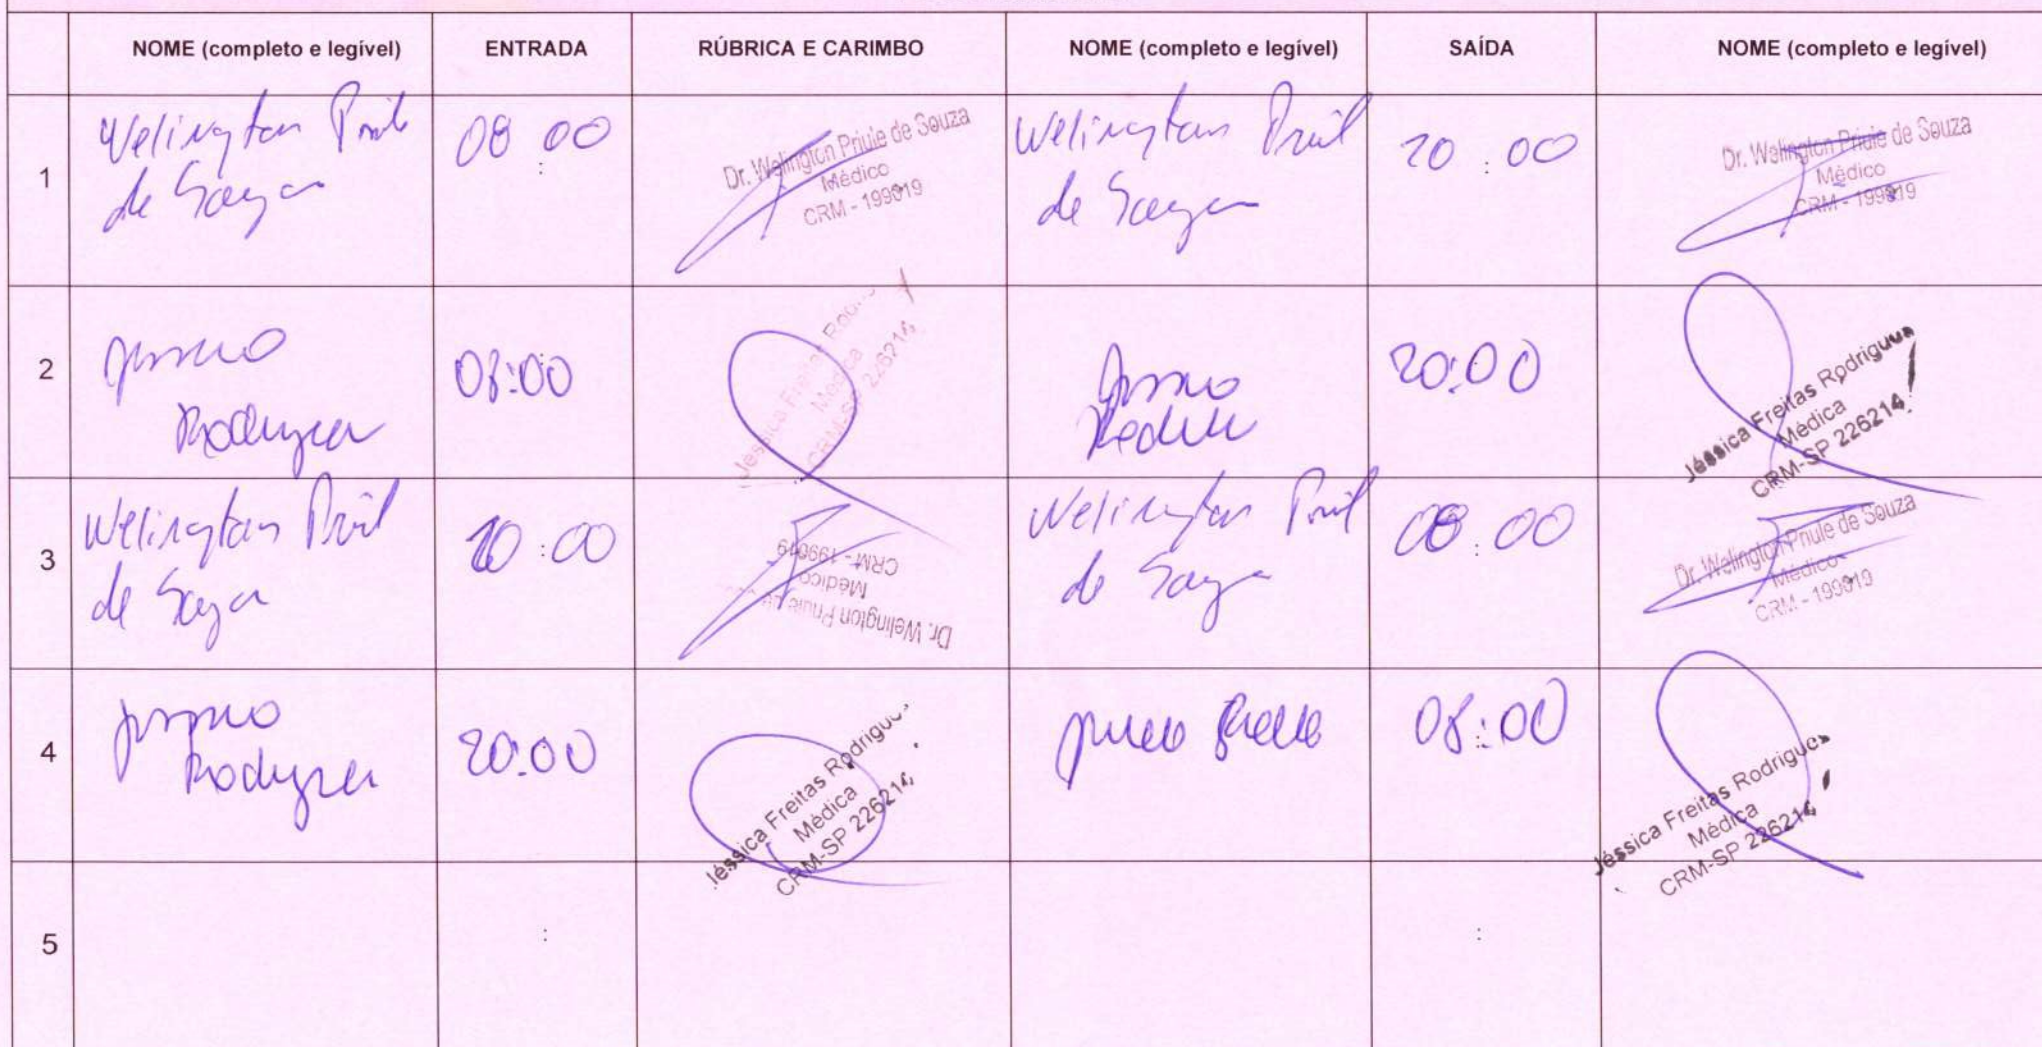 NOME (completo e legível) ENTRADA RÚBRICA E CARIMBO NOME (completo e legível) SAÍDA NOME (completo e legível)
1
Welington
de Souza
08:00
Dr. Welington Priule de Souza
Médico
CRM - 199919
Welington
de Souza
20:00
Dr. Welington Priule de Souza
Médico
CRM - 199919
2
Rodrigues
08:00
Jéssica Freitas
Médica
CRM-SP 226214
20:00
Jéssica Freitas Rodrigues
Médica
CRM-SP 226214
3
Welington
de Souza
20:00
Dr. Welington Priule
Médico
CRM - 199919
Welington
de Souza
08:00
Dr. Welington Priule de Souza
Médico
CRM - 199919
4
Rodrigues
20:00
Jéssica Freitas Rodrigues
Médica
CRM-SP 226214
08:00
Jéssica Freitas Rodrigues
Médica
CRM-SP 226214
5
:
: